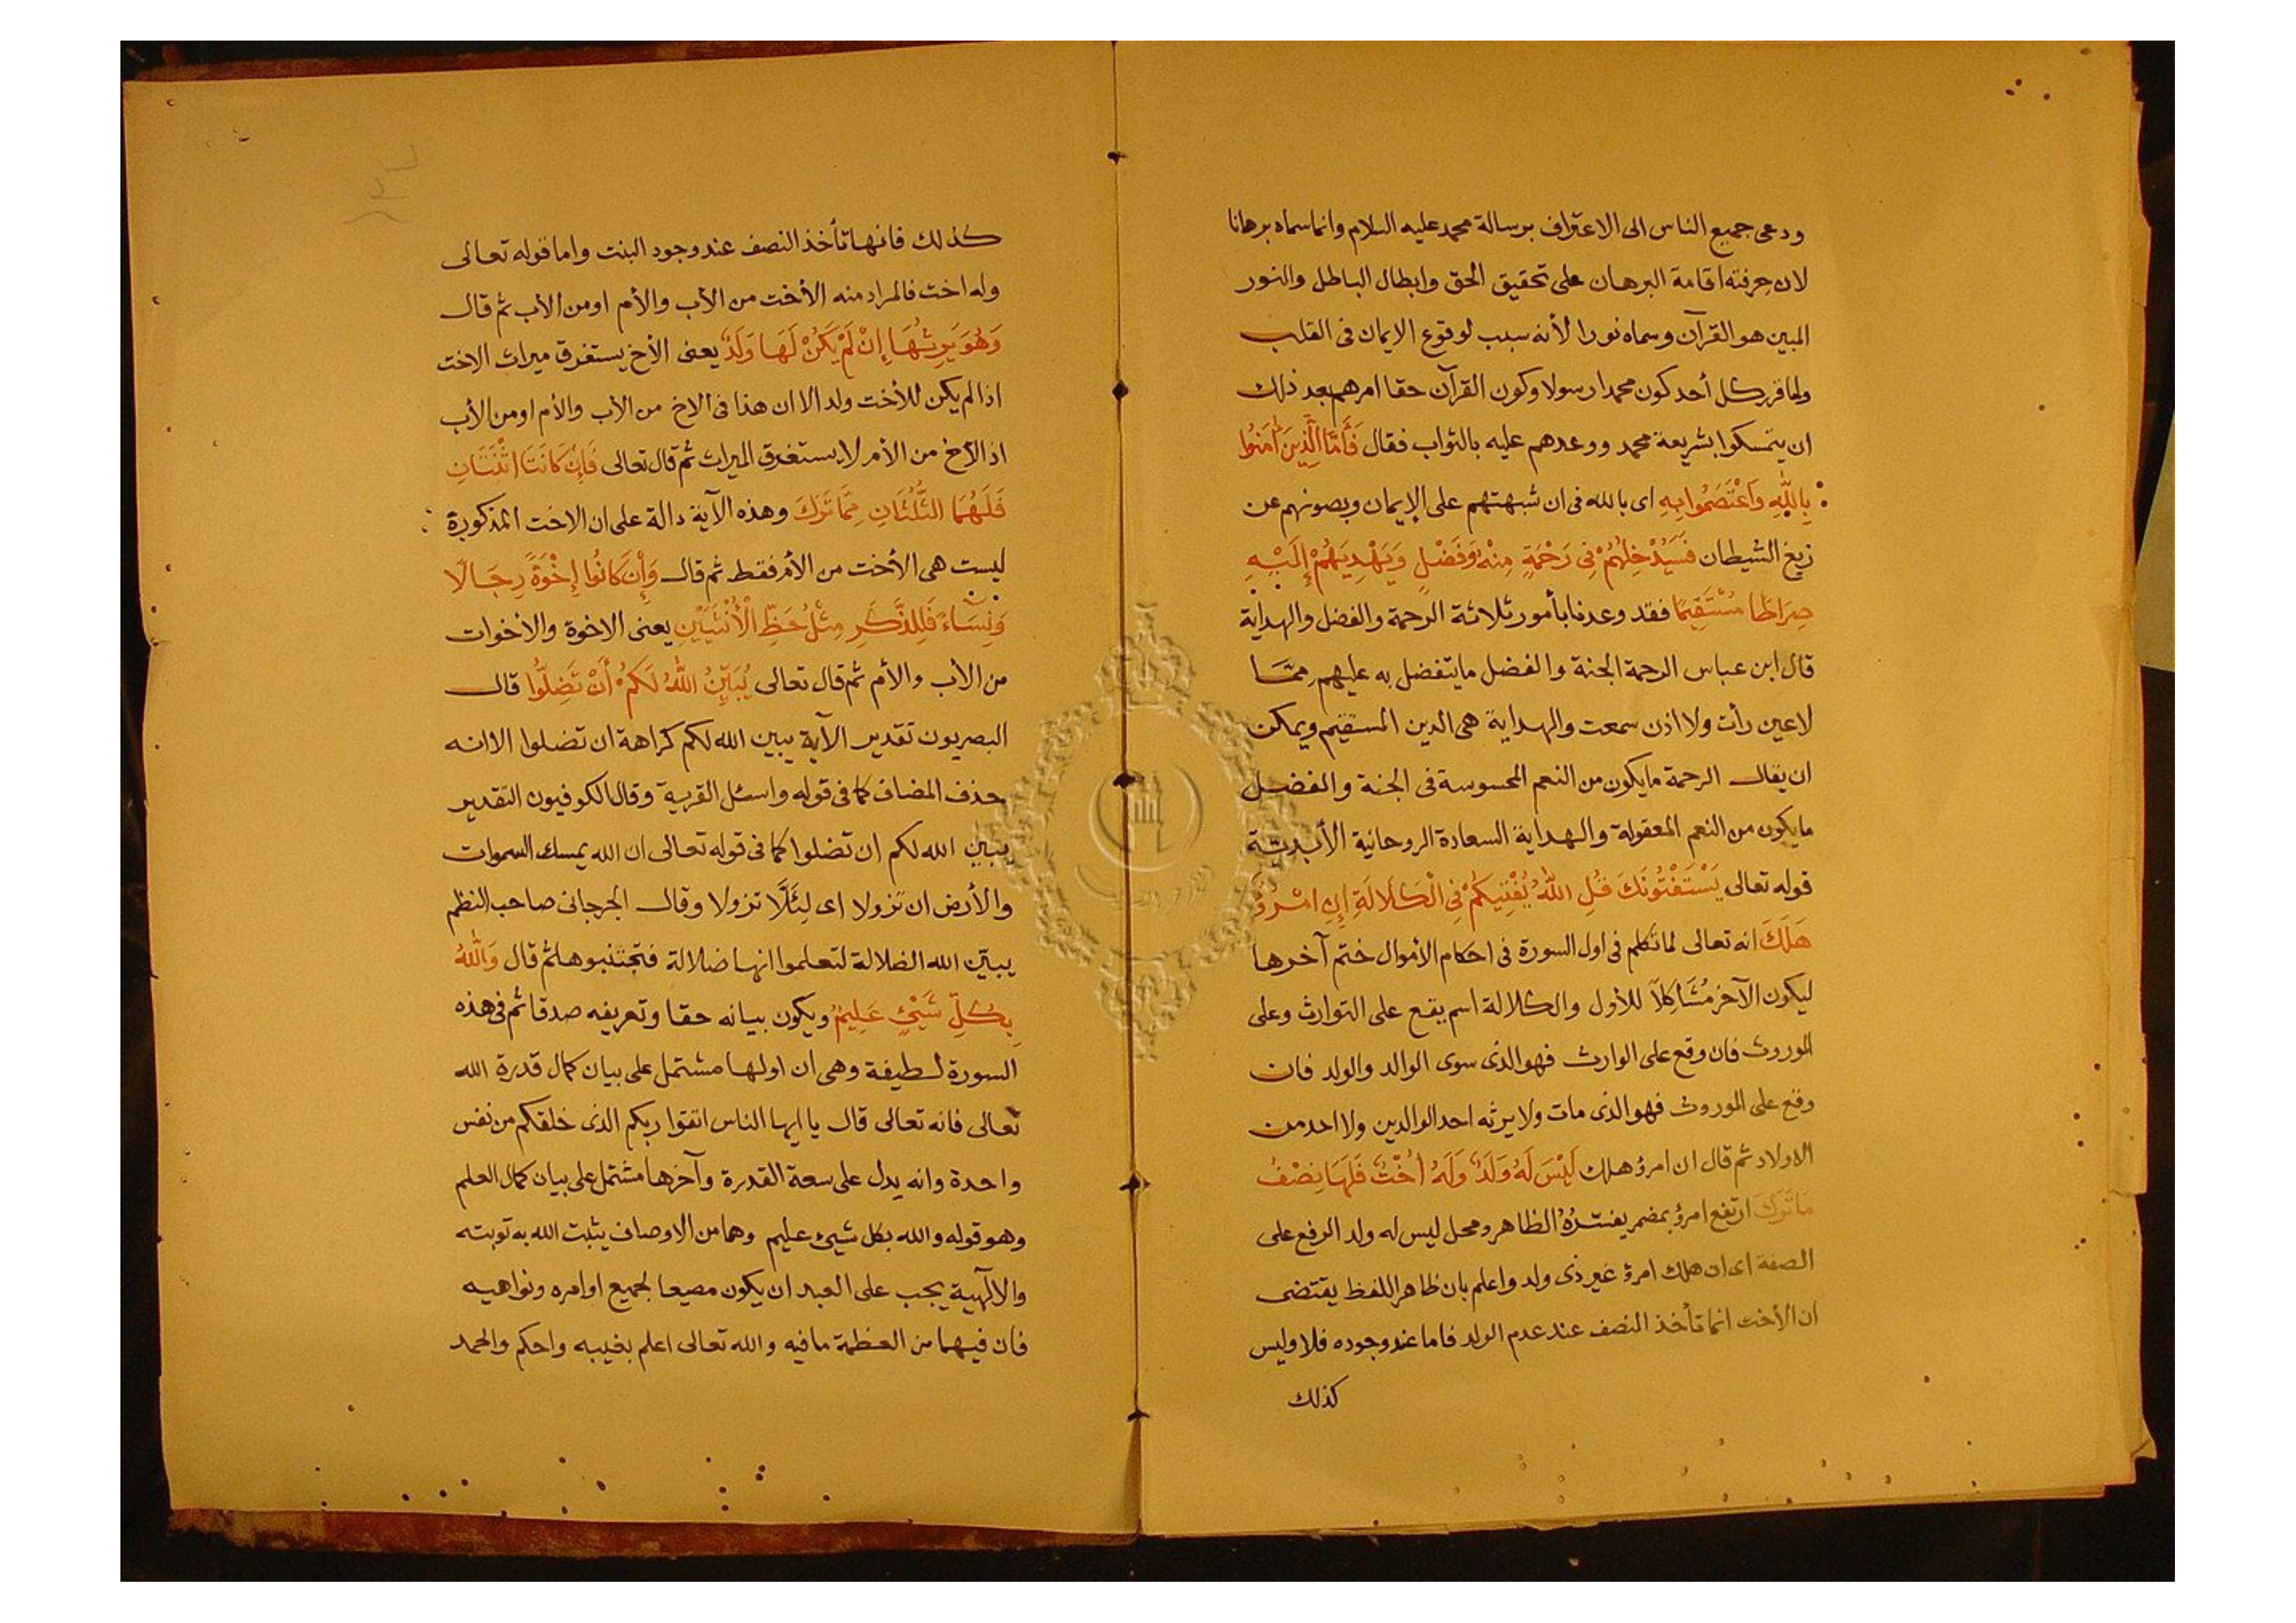 ودعى جميع الناس الى الاعتراف برسالة محمد عليه السلام وانما سماه برهانا
لان حرفته اقامة البرهان على تحقيق الحق وابطال الباطل والنور
المبين هو القرآن وسماه نورا لأنه سبب لوقوع الايمان فى القلب
ولما قرر كل أحد كون محمدا رسولا وكون القرآن حقا امرهم بعد ذلك
ان يتمسكوا بشريعة محمد ووعدهم عليه بالثواب فقال فَأَمَّا الَّذِينَ اٰمَنُوا
بِاللّٰهِ وَاعْتَصَمُوا بِهِ اى بالله فى ان شبهتهم على الإيمان ويصونهم عن
زيغ الشيطان فَسَيُدْخِلُهُمْ فِى رَحْمَةٍ مِنْهُ وَفَضْلٍ وَيَهْدِيَهُمْ إِلَيْهِ
صِرَاطًا مُسْتَقِيمًا فقد وعدنا بأمور ثلاثة الرحمة والفضل والهداية
قال ابن عباس الرحمة الجنة والفضل ما يتفضل به عليهم مِمَّا
لا عين رأت ولا اذن سمعت والهداية هى الدين المستقيم ويمكن
ان يقال الرحمة ما يكون من النعم المحسوسة فى الجنة والفضل
ما يكون من النعم المعقولة والهداية السعادة الروحانية الأبديّة
قوله تعالى يَسْتَفْتُونَكَ قُلِ اللّٰهُ يُفْتِيكُمْ فِى الْكَلَالَةِ إِنِ امْرُؤٌ
هَلَكَ انه تعالى لما تكلم فى اول السورة فى احكام الأموال ختم آخرها
ليكون الآخر مُشَاكِلًا للأول والكلالة اسم يقع على التوارث وعلى
الموروث فان وقع على الوارث فهو الذى سوى الوالد والولد فان
وقع على الموروث فهو الذى مات ولا يرثه احد الوالدين ولا احد من
الاولاد ثم قال ان امرؤ هلك لَيْسَ لَهُ وَلَدٌ وَلَهُ أُخْتٌ فَلَهَا نِصْفُ
مَا تَرَكَ ارتفع امرؤ بمضمر يفسّرُهُ الظاهر ومحل ليس له ولد الرفع على
الصفة اى ان هلك امرؤ غير ذى ولد واعلم بان ظاهر اللفظ يقتضى
ان الأخت انما تأخذ النصف عند عدم الولد فاما عند وجوده فلا وليس
كذلك
كذلك فانها تأخذ النصف عند وجود البنت واما قوله تعالى
وله اخت فالمراد منه الأخت من الأب والأم او من الأب ثم قال
وَهُوَ يَرِثُهَا إِنْ لَمْ يَكُنْ لَهَا وَلَدٌ يعنى الأخ يستغرق ميراث الاخت
اذا لم يكن للأخت ولد الا ان هذا فى الاخ من الأب والأم او من الأب
اذ الأخ من الأم لا يستغرق الميراث ثم قال تعالى فَإِنْ كَانَتَا اثْنَتَانِ
فَلَهُمَا الثُّلُثَانِ مِمَّا تَرَكَ وهذه الآية دالة على ان الاخت المذكورة
ليست هى الأخت من الأم فقط ثم قال وَإِنْ كَانُوا إِخْوَةً رِجَالًا
وَنِسَاءً فَلِلذَّكَرِ مِثْلُ حَظِّ الْأُنْثَيَيْنِ يعنى الاخوة والأخوات
من الأب والأم ثم قال تعالى يُبَيِّنُ اللّٰهُ لَكُمْ أَنْ تَضِلُّوا قال
البصريون تقدير الآية يبين الله لكم كراهة ان تضلوا الا انه
حذف المضاف كما فى قوله واسئل القرية وقال الكوفيون التقدير
يبين الله لكم ان تضلوا كما فى قوله تعالى ان الله يمسك السموات
والأرض ان تزولا اى لِئَلَّا تزولا وقال الجرجانى صاحب النظم
يبيّن الله الضلالة لتعلموا انها ضلالة فتجتنبوها ثم قال وَاللّٰهُ
بِكُلِّ شَيْئٍ عَلِيمٌ ويكون بيانه حقا وتعريفه صدقا ثم فى هذه
السورة لطيفة وهى ان اولها مشتمل على بيان كمال قدرة الله
تعالى فانه تعالى قال يا ايها الناس اتقوا ربكم الذى خلقكم من نفس
واحدة وانه يدل على سعة القدرة وآخرها مشتمل على بيان كمال العلم
وهو قوله والله بكل شيئ عليم وهما من الاوصاف يثبت الله به توبته
والالٓهية يجب على العبد ان يكون مصيعا لجميع اوامره ونواهيه
فان فيهما من العظمة ما فيه والله تعالى اعلم بغيبه واحكم والحمد